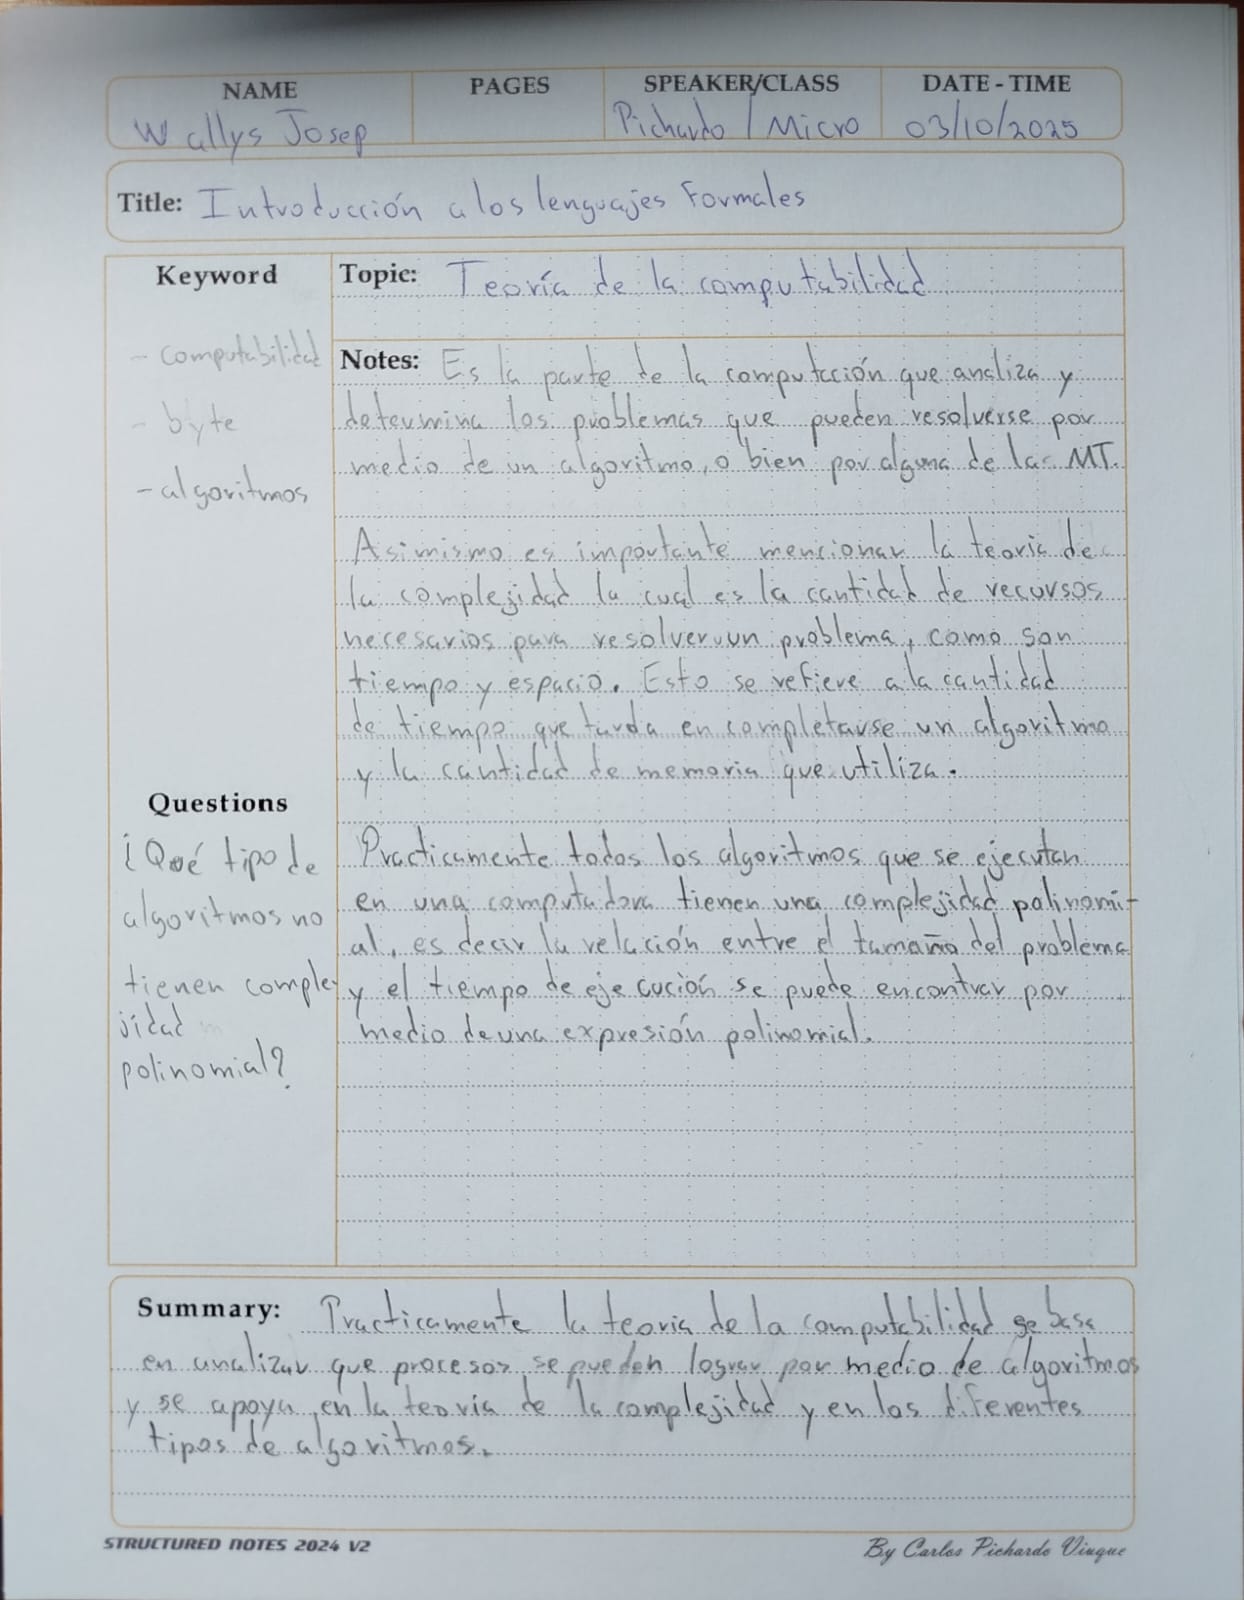 NAME PAGES SPEAKER/CLASS DATE - TIME
Wallys Josep Pichardo / Micro 03/10/2025
Title: Introducción a los lenguajes Formales
Keyword
- computabilidad
- byte
- algoritmos
Topic: Teoría de la computabilidad
Notes: Es la parte de la computación que analiza y
determina los problemas que pueden resolverse por
medio de un algoritmo, o bien por alguna de las MT.
Asimismo es importante mencionar la teoria de
la complejidad la cual es la cantidad de recursos
necesarios para resolver un problema, como son
tiempo y espacio. Esto se refiere a la cantidad
de tiempo que tarda en completarse un algoritmo
y la cantidad de memoria que utiliza.
Practicamente todos los algoritmos que se ejecutan
en una computadora tienen una complejidad polinomi-
al, es decir la relación entre el tamaño del problema
y el tiempo de ejecución se puede encontrar por
medio de una expresión polinomial.
Questions
¿Qué tipo de
algoritmos no
tienen comple-
jidad
polinomial?
Summary: Practicamente la teoria de la computabilidad se basa
en analizar que procesos se pueden lograr por medio de algoritmos
y se apoya en la teoria de la complejidad y en los diferentes
tipos de algoritmos.
STRUCTURED NOTES 2024 V2 By Carlos Pichardo Viuque